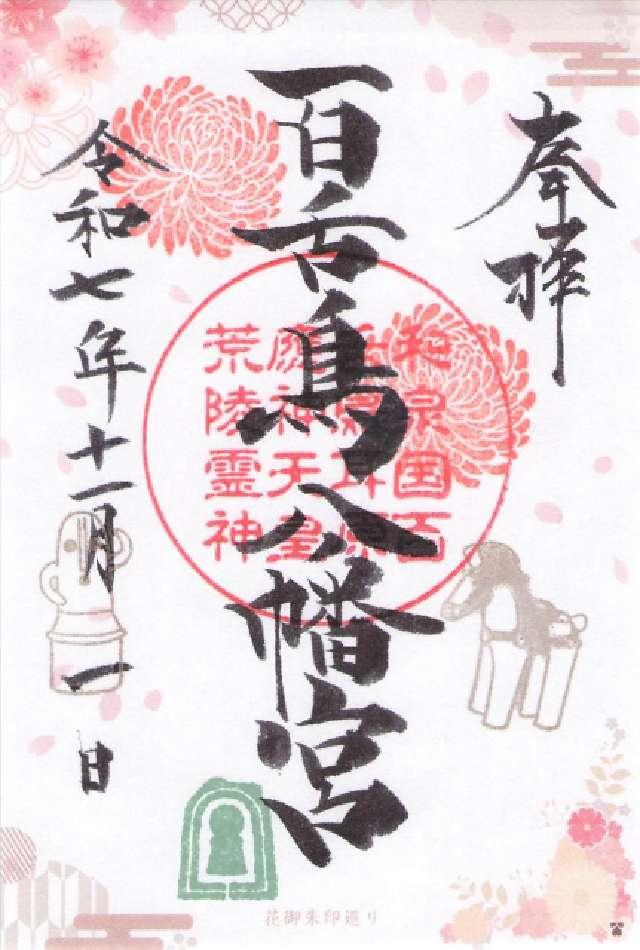 奉拝
百舌鳥八幡宮
和泉国百
舌鳥耳原
應神天皇
荒陵霊神
令和七年十一月一日
花御朱印巡り